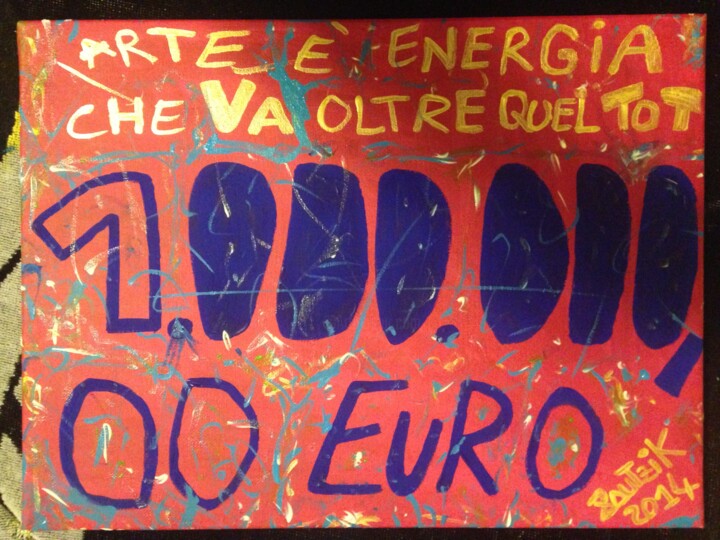 ARTE È ENERGiA
CHE VA OLTRE QUEL TOT
1.000.000,
00 EURO
2014